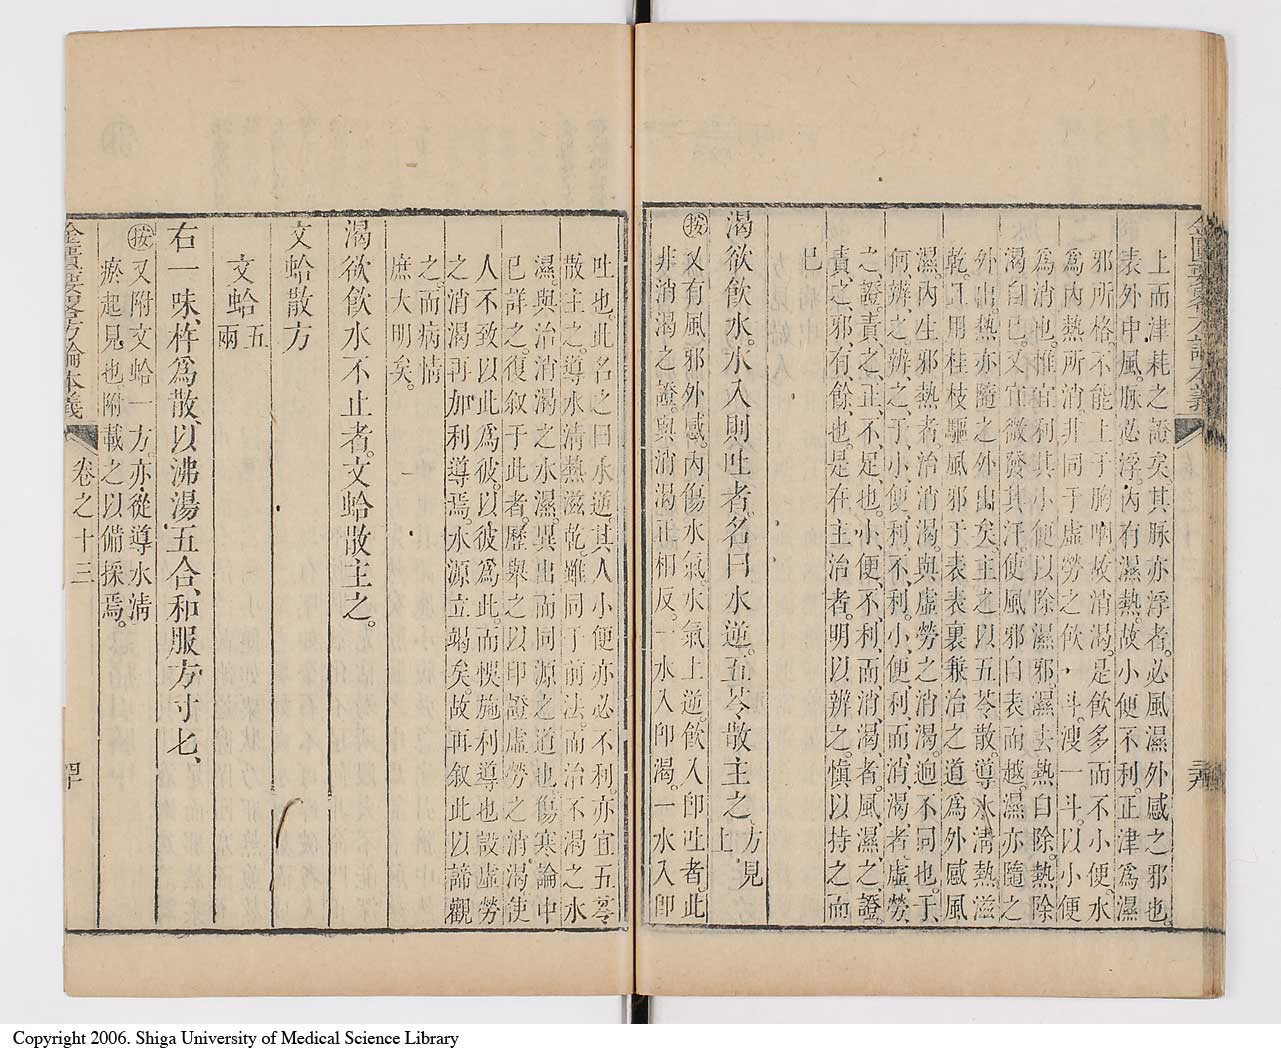 上而津耗之證矣。其脉亦浮者。必風濕外感之邪也。
表外中風。脉必浮。內有濕熱。故小便不利。正津爲濕
邪所格。不能上于胸咽。故消渴。是飲多而不小便。水
爲內熱所消。非同于虛勞之飲一斗。溲一斗。以小便
爲消也。惟宜利其小便以除濕邪。濕去熱自除。熱除
渴自已。又宜微發其汗。使風邪自表而越。濕亦隨之
外出。熱亦隨之外出矣。主之以五苓散。導水淸熱滋
乾。且用桂枝驅風邪于表。表裏兼治之道。爲外感風
濕。內生邪熱者。治消渴。與虛勞之消渴。迥不同也。于
何辨之。辨之、于小便利、不利。小便利、而消渴者、虛勞
之證。責之、正、不足也。小便不利、而消渴者、風濕之證。
責之、邪、有餘也。是在主治者。明以辨之。愼以持之而
已
渴欲飲水。水入則吐者。名曰水逆。五苓散主之。方見
上
按又有風邪外感。內傷水氣。水氣上逆。飲入卽吐者。此
非消渴之證。與消渴正相反。一水入卽渴。一水入卽
吐也。此名之曰水逆。其人小便亦必不利。亦宜五苓
散主之。導水淸熱滋乾。雖同于前法。而治不渴之水
濕。與治消渴之水濕。異出而同源之道也。傷寒論中
已詳之。復叙于此者。歷舉之以印證虛勞之消渴。使
人不致以此爲彼。以彼爲此。而悞施利導也。設虛勞
之消渴。再加利導焉。水源立竭矣。故再叙此以諦觀
之。而病情
庶大明矣。
渴欲飲水不止者。文蛤散主之。
文蛤散方
文蛤五
兩
右一味、杵爲散、以沸湯、五合、和服方寸匕、
按又附文蛤一方。亦從導水淸
瘀起見也。附載之以備採焉。
金匱要畧方論本義
卷之十三